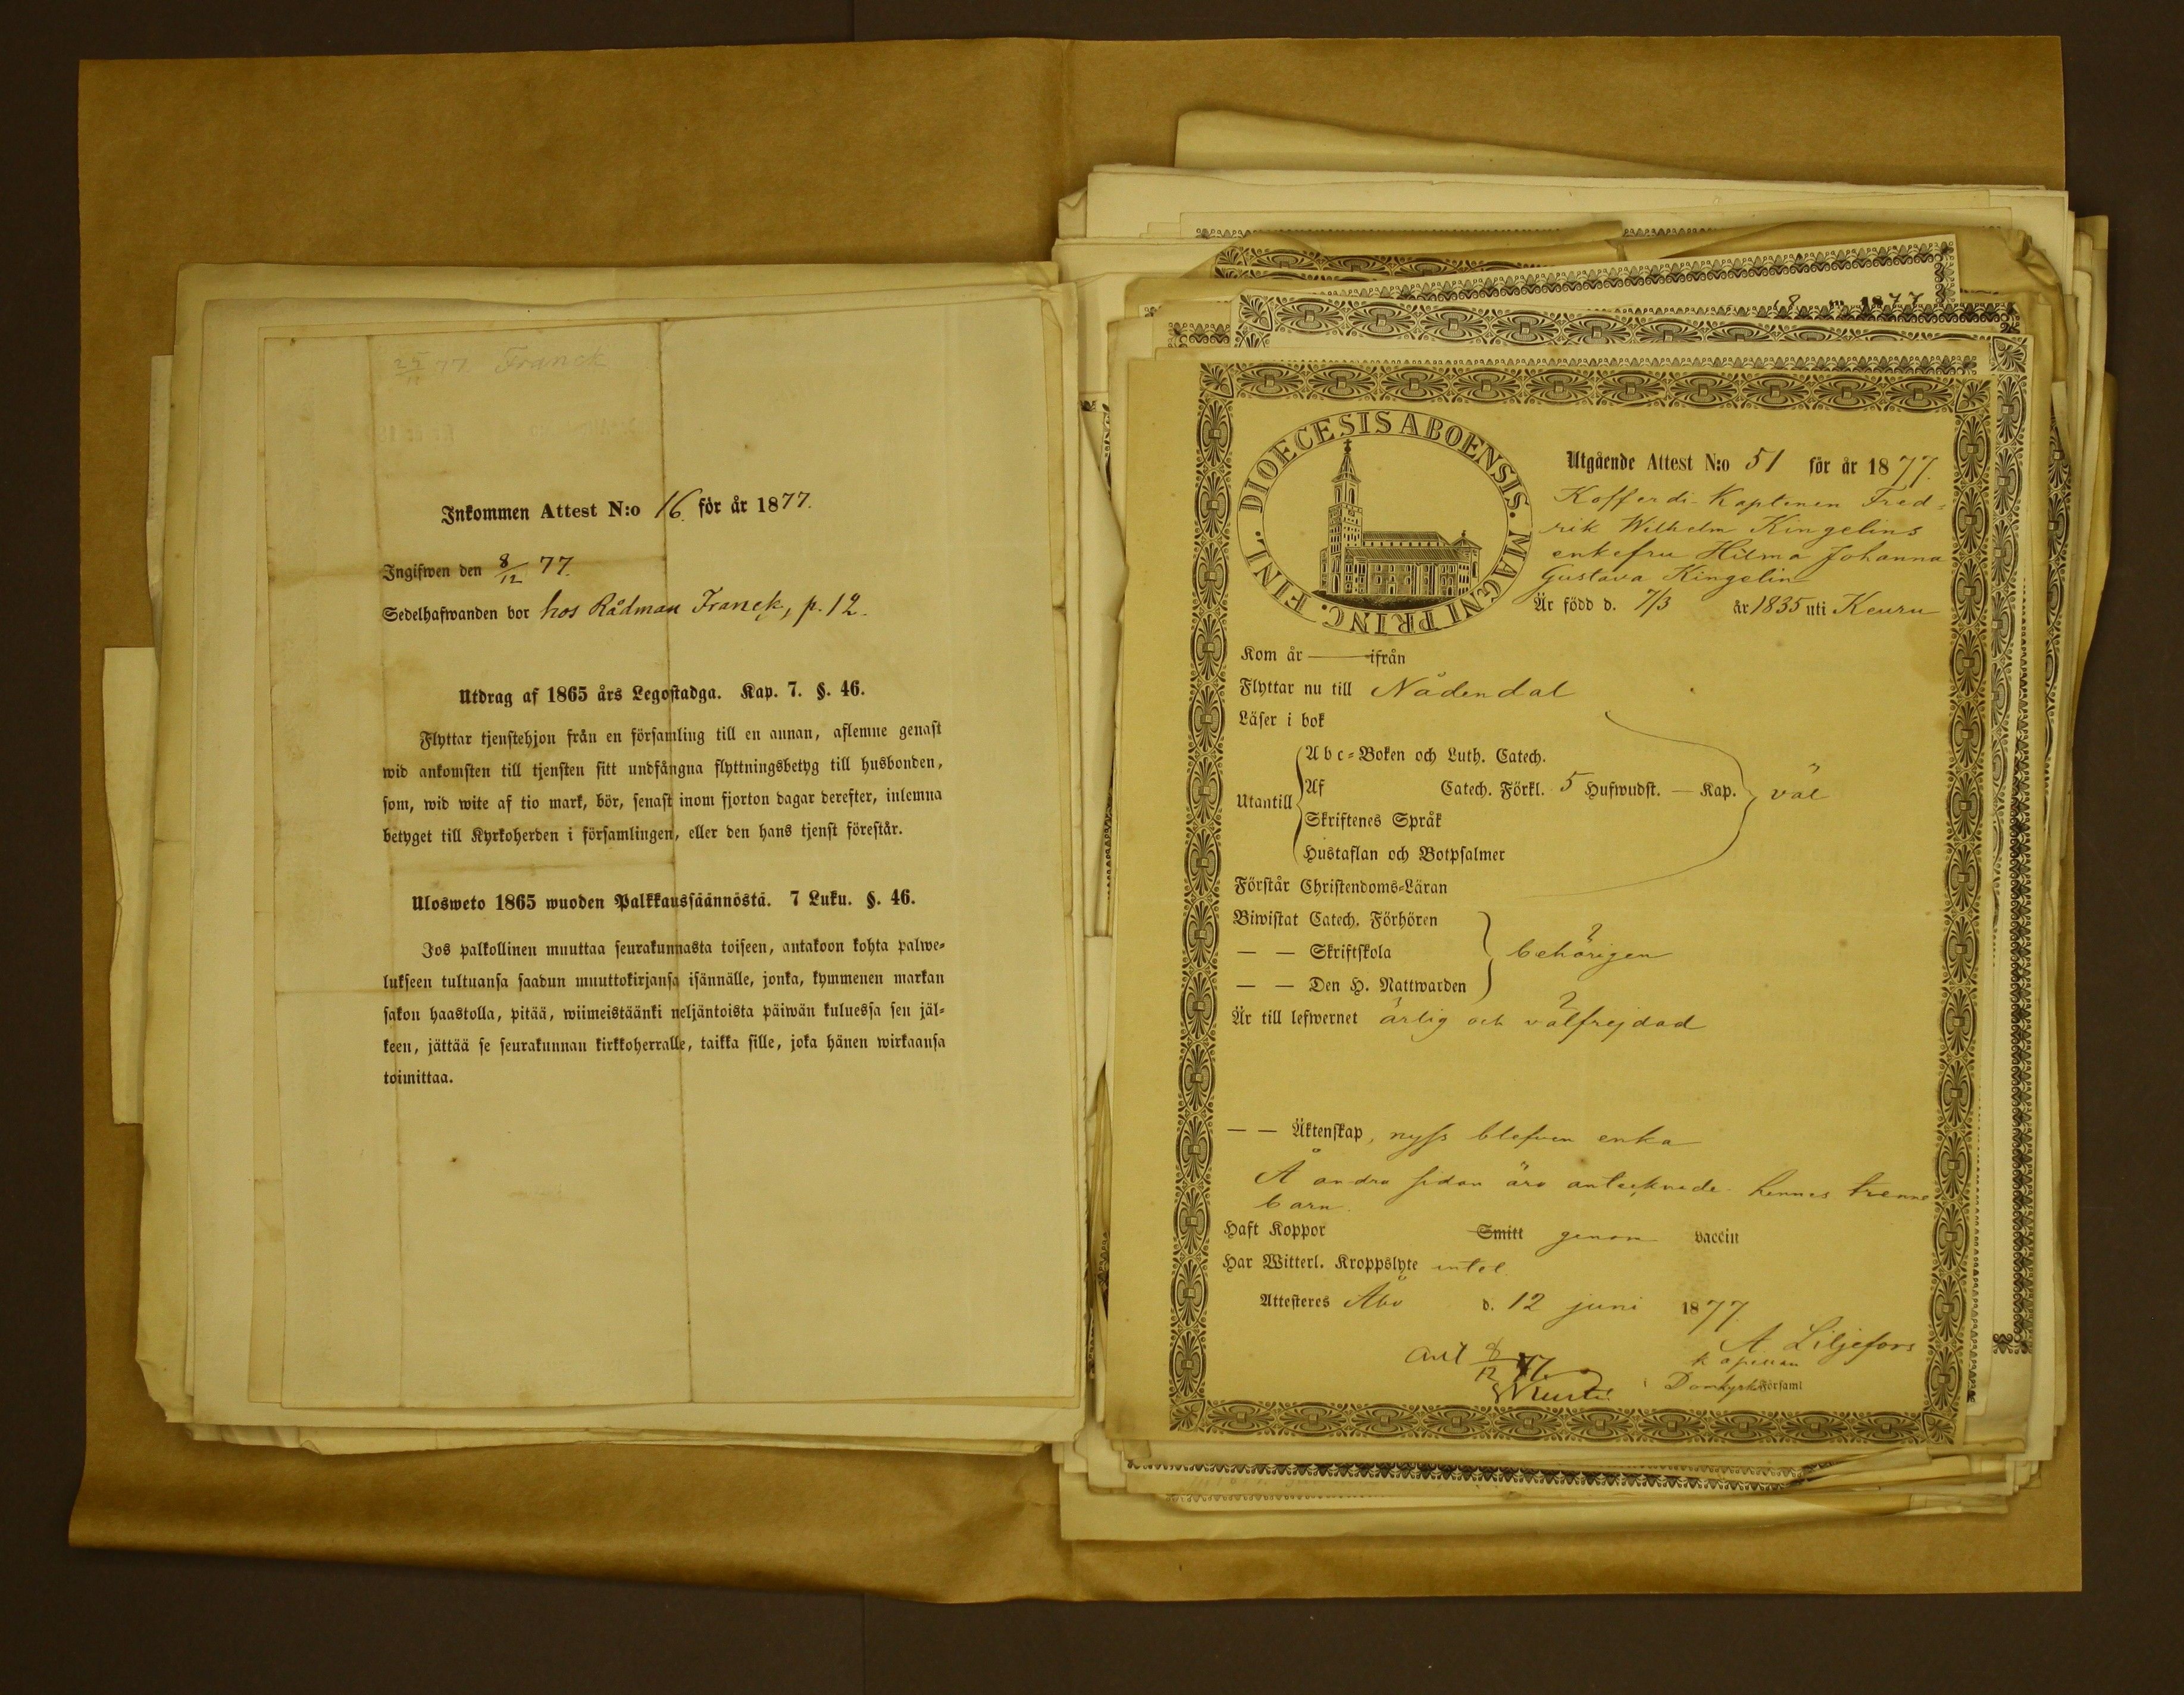 25/11 77 Franck
Inkommen Attest N:o 16. för år 1877.
Ingifwen den 8/12 77.
Sedelhafwanden bor hos Rådman Franck, p. 12.
Utdrag af 1865 års Legostadga. Kap. 7. §. 46.
Flyttar tjenstehjon från en församling till en annan, aflemne genast
wid ankomsten till tjensten sitt undfångna flyttningsbetyg till husbonden,
som, wid wite af tio mark, bör, senast inom fjorton dagar derefter, inlemna
betyget till Kyrkoherden i församlingen, eller den hans tjenst förestår.
Ulosweto 1865 wuoden Palkkaussäännöstä. 7 Luku. §. 46.
Jos palkollinen muuttaa seurakunnasta toiseen, antakoon kohta palwe=
lukseen tultuansa saadun muuttokirjansa isännälle, jonka, kymmenen markan
sakon haastolla, pitää, wiimeistäänki neljäntoista päiwän kuluessa sen jäl=
keen, jättää se seurakunnan kirkkoherralle, taikka sille, joka hänen wirkaansa
toimittaa.
18 1877
DIOECESIS ABOENSIS. MAGNI PRINC. FINL.
Utgående Attest N:o 51 för år 1877.
Kofferdi-Kaptenen Fred=
rik Wilhelm Kingelins
enkefru Hilma Johanna
Gustava Kingelin
Är född d. 7/3 år 1835 uti Keuru
Kom år — ifrån
Flyttar nu till Nådendal
Läser i bok
Utantill
Abc=Boken och Luth. Catech.
Af Catech. Förkl. 5 Hufwudst. — Kap. väl
Skriftenes Språk
Hustaflan och Botpsalmer
Förstår Christendoms=Läran
Biwistat Catech. Förhören
— — Skriftskola behörigen
— — Den H. Nattwarden
Är till lefwernet ärlig och välfrejdad
— — Äktenskap, nyss blefven enka
Å andra sidan äro antecknade hennes trenne
barn.
Haft Koppor Smitt genom vaccin
Har Witterl. Kroppslyte intet.
Attesteres Åbo d. 12 juni 1877.
A Liljefors
kapellan
i Domkyrko Församl
Anl 8/12 77.